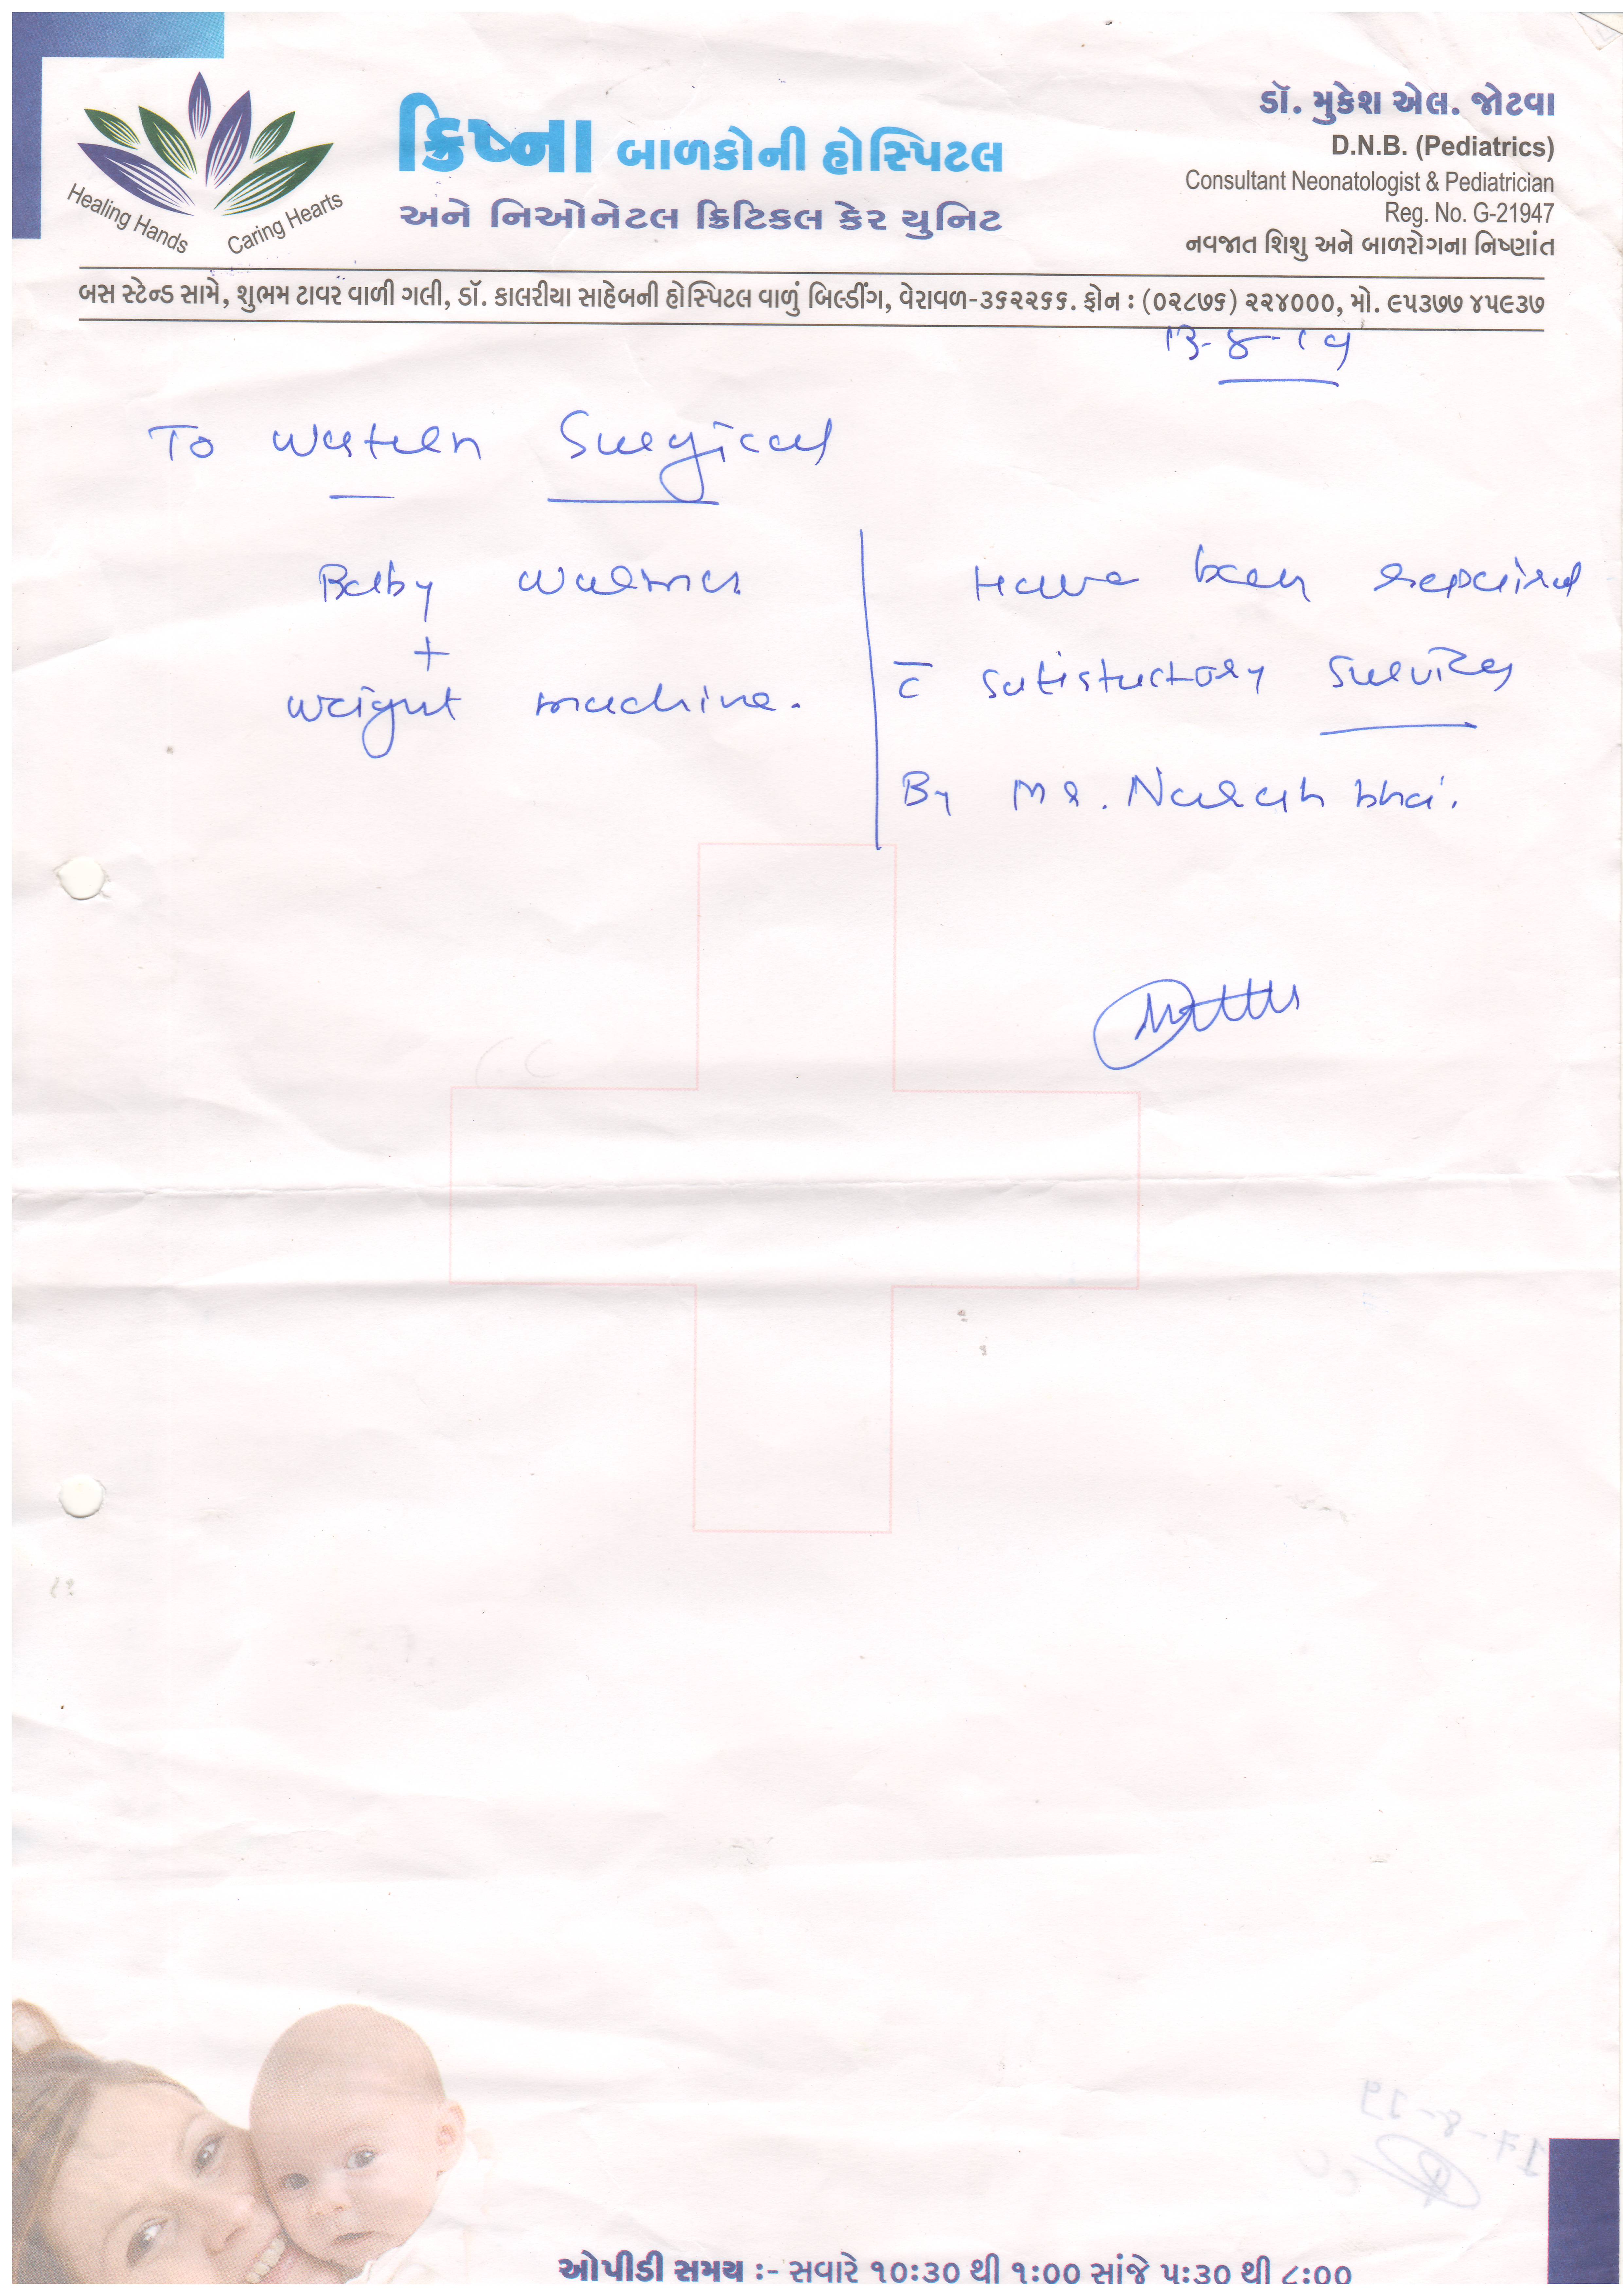 Healing Hands Caring Hearts
ક્રિષ્ના બાળકોની હોસ્પિટલ
અને નિઓનેટલ ક્રિટિકલ કેર યુનિટ
ડૉ. મુકેશ એલ. જોટવા
D.N.B. (Pediatrics)
Consultant Neonatologist & Pediatrician
Reg. No. G-21947
નવજાત શિશુ અને બાળરોગના નિષ્ણાંત
બસ સ્ટેન્ડ સામે, શુભમ ટાવર વાળી ગલી, ડૉ. કાલરીયા સાહેબની હોસ્પિટલ વાળું બિલ્ડીંગ, વેરાવળ-૩૬૨૨૬૬. ફોન : (૦૨૮૭૬) ૨૨૪૦૦૦, મો. ૯૫૩૭૭ ૪૫૯૩૭
To Western Surgical
Baby warmer
+
weight machine.
Have been repaired
c̄ satisfactory
By Mr. Naresh bhai.
17-8-19
ઓપીડી સમય :- સવારે ૧૦:૩૦ થી ૧:૦૦ સાંજે ૫:૩૦ થી ૮:૦૦